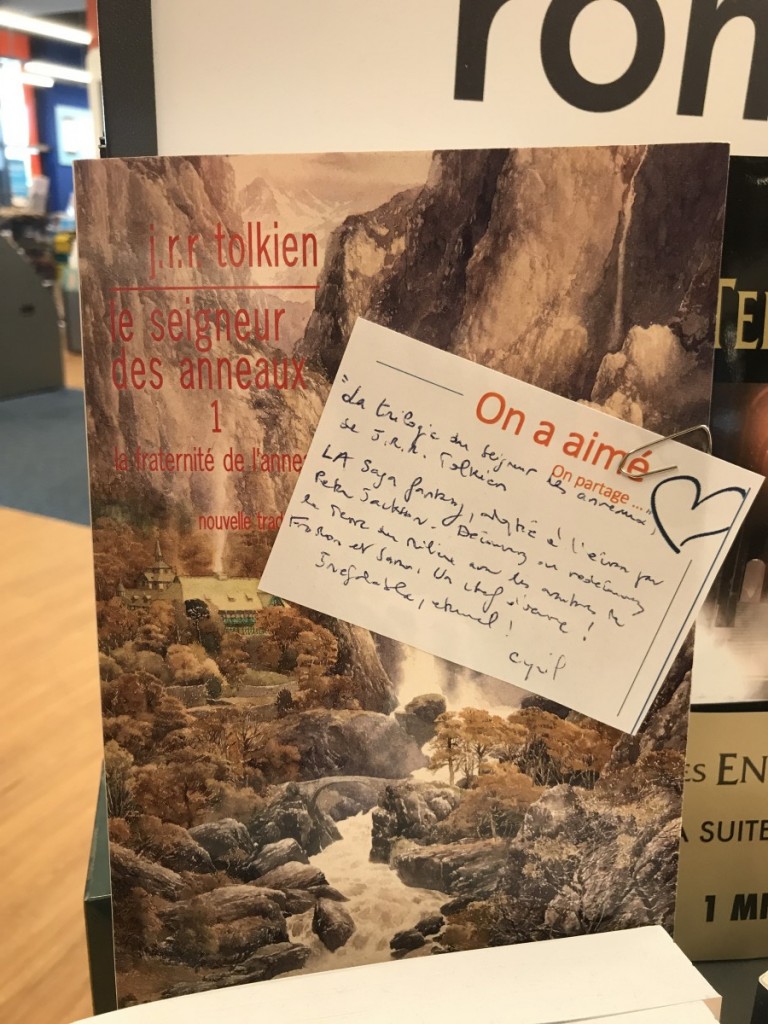 rom
j.r.r tolkien
le seigneur
des anneaux
1
la fraternité de l'anne
nouvelle trad
On a aimé
On partage...
"La trilogie du Seigneur des anneaux",
de J.R.R. Tolkien
LA Saga fantasy, adaptée à l'écran par
Peter Jackson. Découvrez ou redécouvrez
la Terre du Milieu avec les aventures de
Frodon et Sam. Un chef d'œuvre !
Inégalable, éternel !
Cyril
TE
ES EN
A SUITE
1 MI